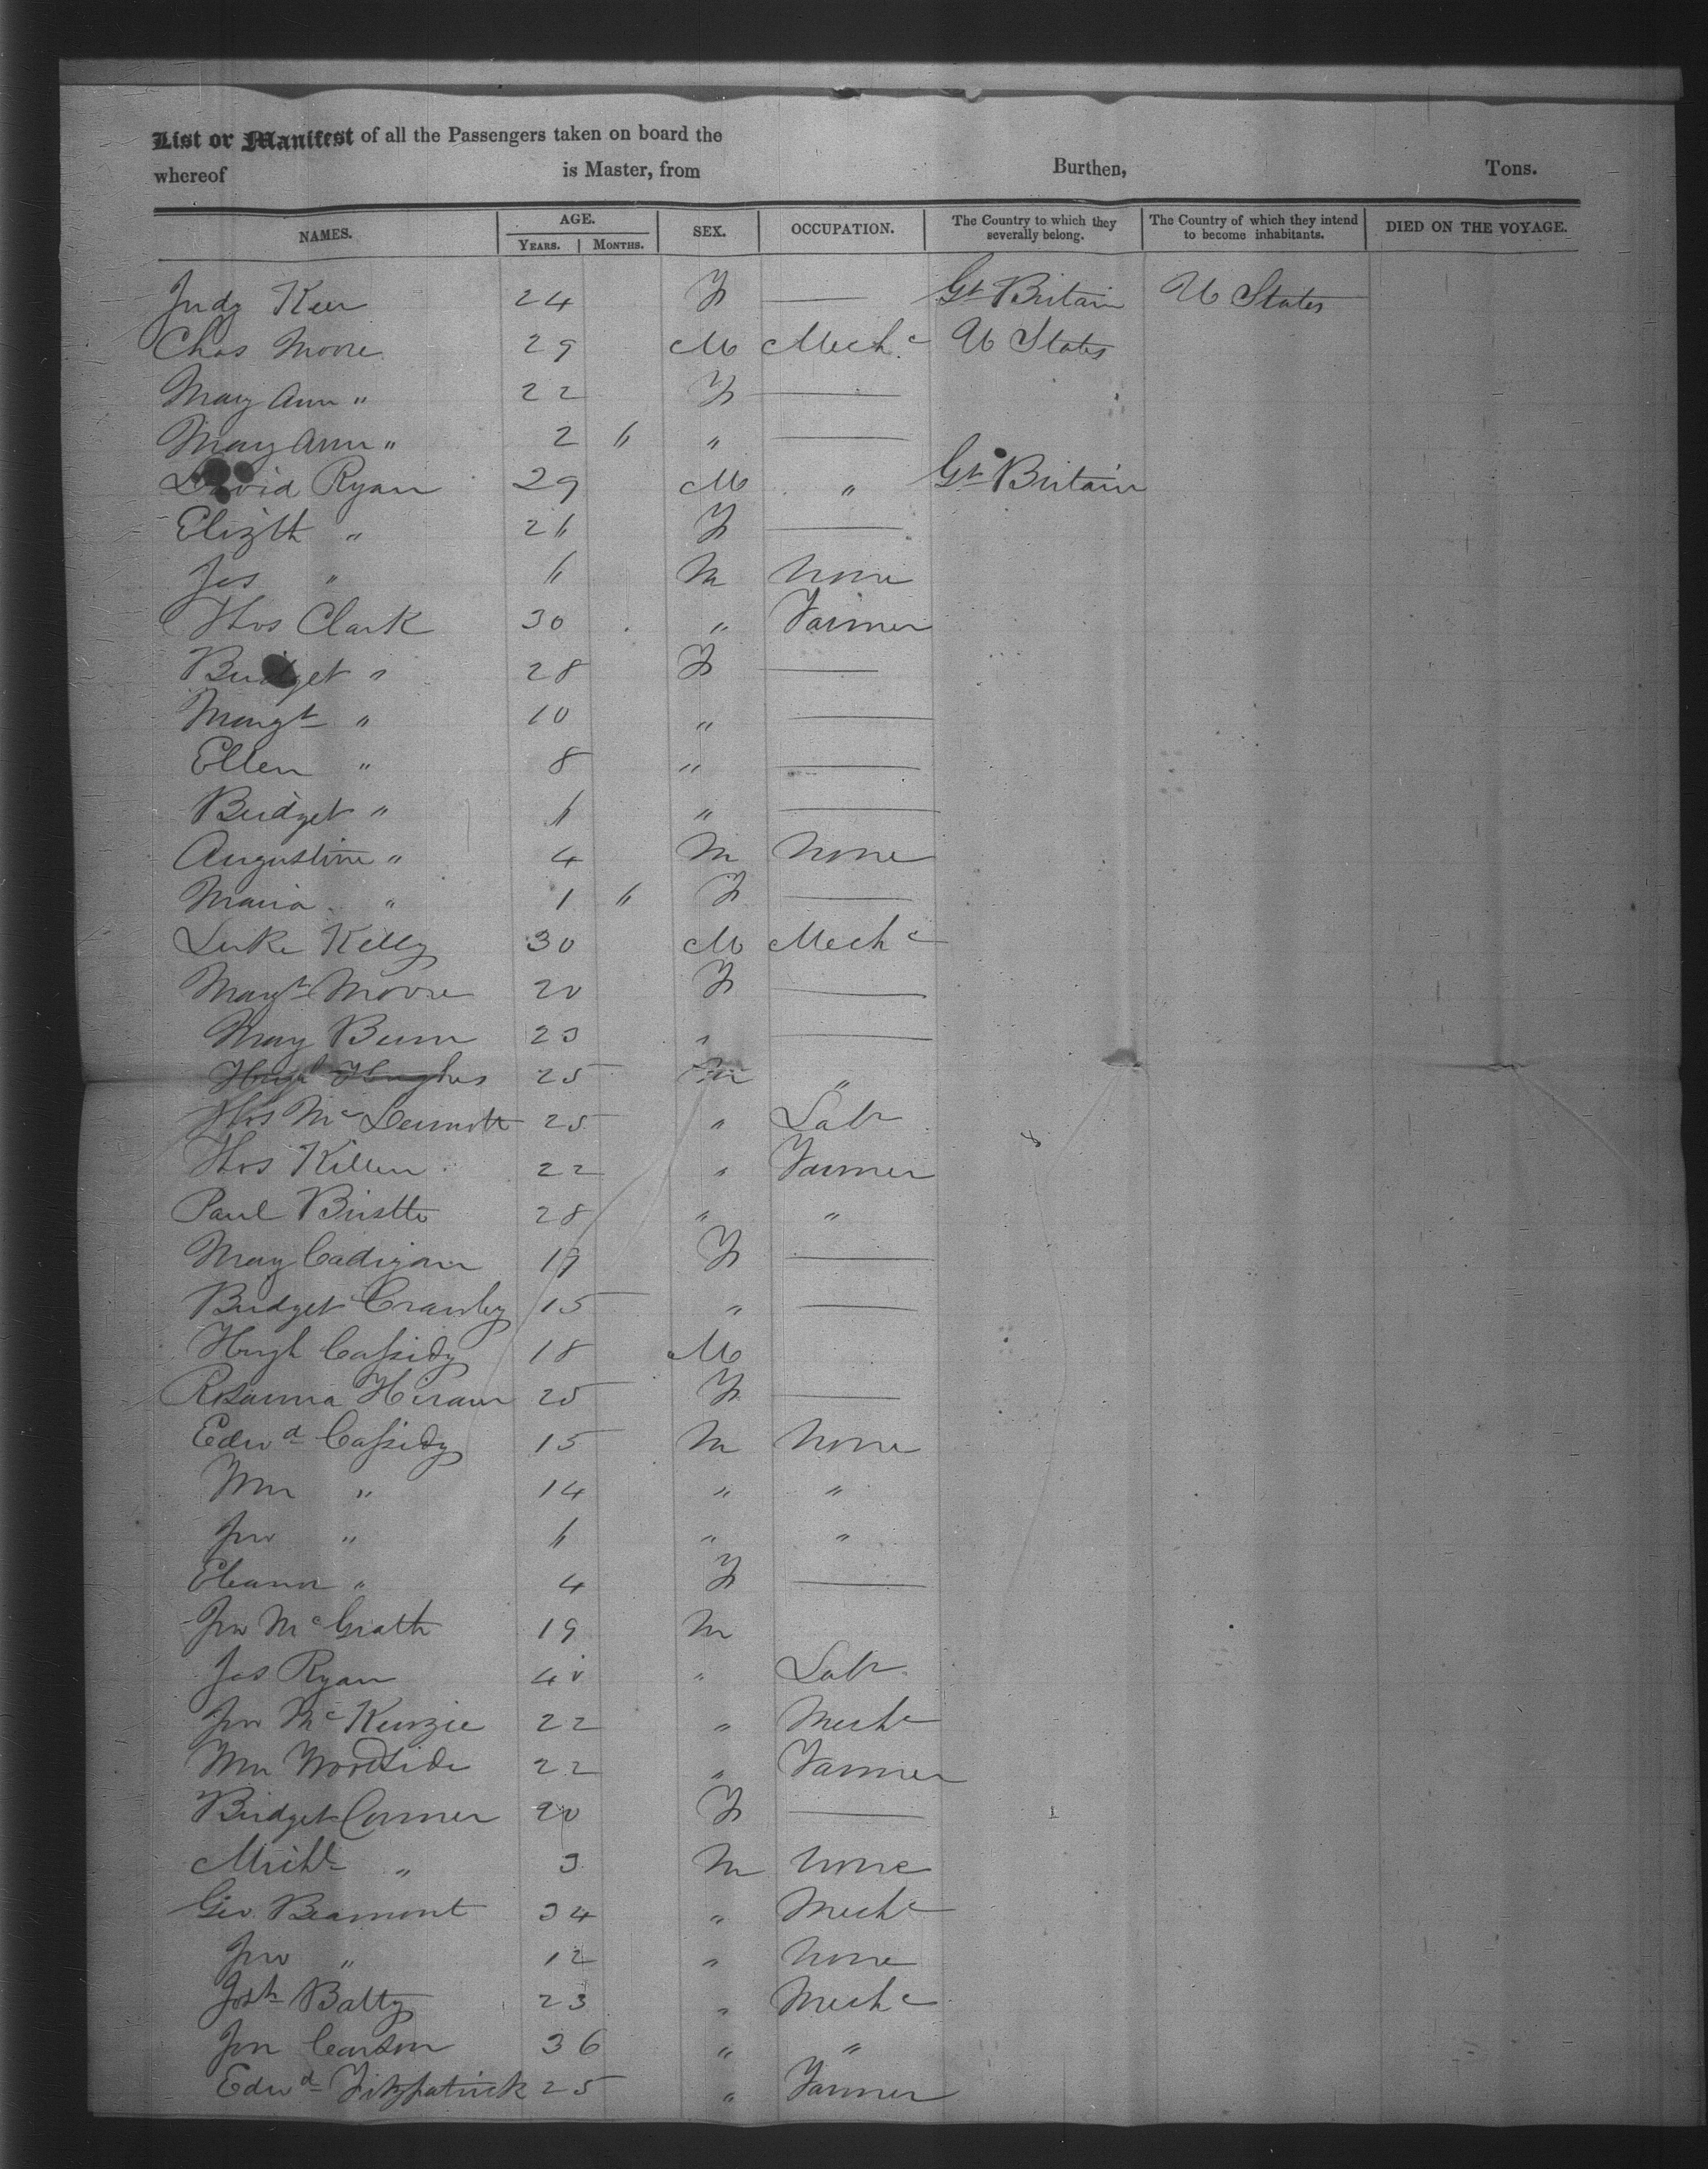 List or Manifest of all the Passengers taken on board the
whereof is Master, from Burthen, Tons.
NAMES. AGE. YEARS. MONTHS. SEX. OCCUPATION. The Country to which they severally belong. The Country of which they intend to become inhabitants. DIED ON THE VOYAGE.
Judy Kerr 24 F — Gt Britain U States
Chas Moore 29 M Mechc U States
Mary Ann " 22 F —
Mary Ann " 2 6 " —
David Ryan 29 M " Gt Britain
Elizth " 26 F —
Jas " 6 M None
Thos Clark 30 " Farmer
Bridget " 28 F —
Margt " 10 " —
Ellen " 8 " —
Bridget " 6 " —
Augustine " 4 M None
Maria " 1 6 F —
Luke Kelly 30 M Mechc
Margt Moore 20 F —
Mary Burn 23 " —
Hugh Hughes 25 M "
Thos McDermott 25 " Labr
Thos Killen 22 " Farmer
Paul 28 " "
Mary Cadigan 19 F —
Bridget Crawley 15 " —
Hugh Cassidy 18 M
Rosanna 25 F —
Edwd Cassidy 15 M None
Wm " 14 " "
Jno " 6 " "
Eleanor " 4 F —
Jno McGrath 19 M
Jas Ryan 40 " Labr
Jno McKenzie 22 " Mechc
Wm Woodside 22 " Farmer
Bridget Conner 20 F —
Michl " 3 M None
Geo Beamont 34 " Mechc
Jno " 12 " None
Josh Batty 23 " Mechc
Jno Carson 36 " "
Edwd Fitzpatrick 25 " Farmer